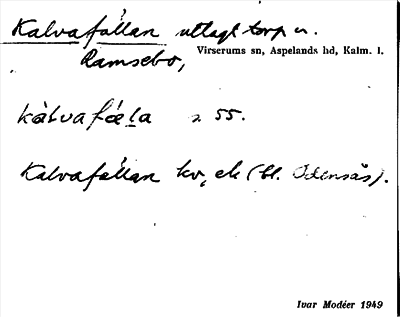 Kalvafällan utlagt torp u.
Ramsebo, Virserums sn, Aspelands hd, Kalm. l.
kàlvafæla s. 55.
Kalvafällan kv, ek (bl. Ödensås).
Ivar Modéer 1949